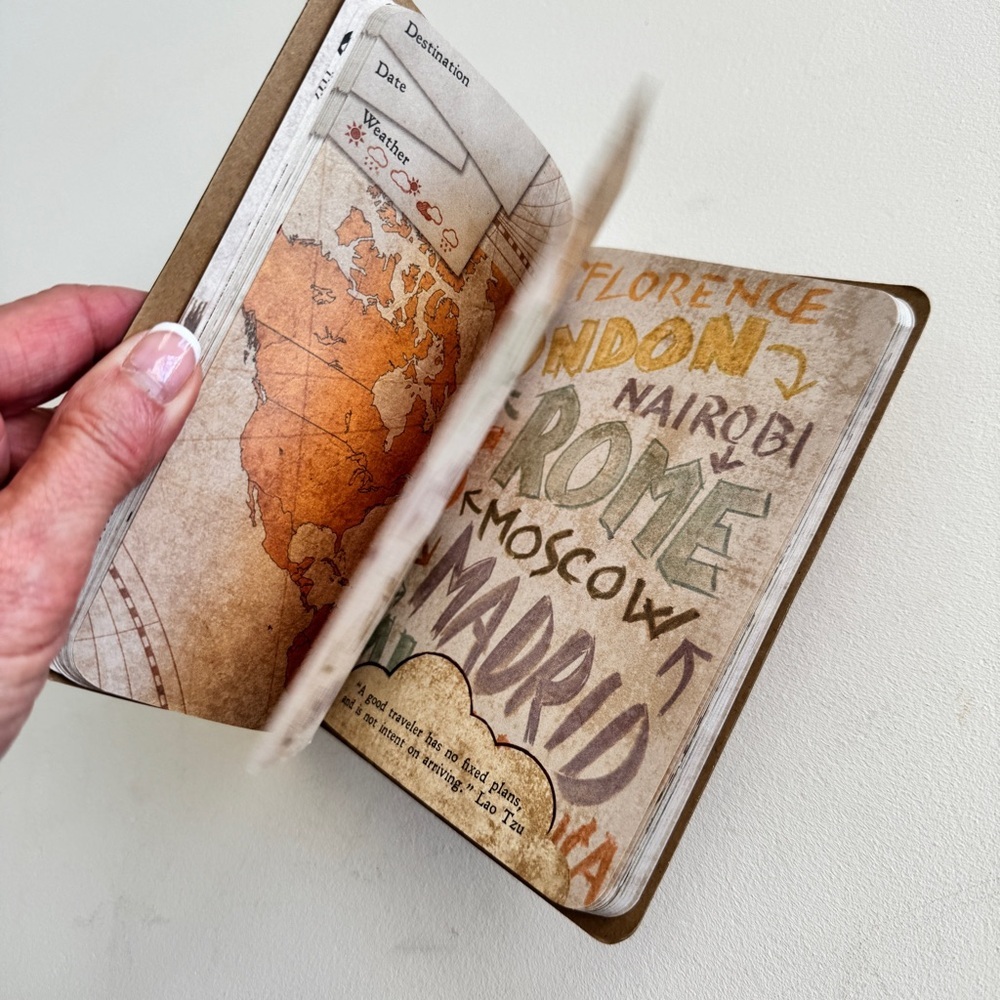 Destination
Date
Weather
FLORENCE
NDON
NAIROBI
ROME
MOSCOW
MADRID
"A good traveler has no fixed plans,
and is not intent on arriving." Lao Tzu